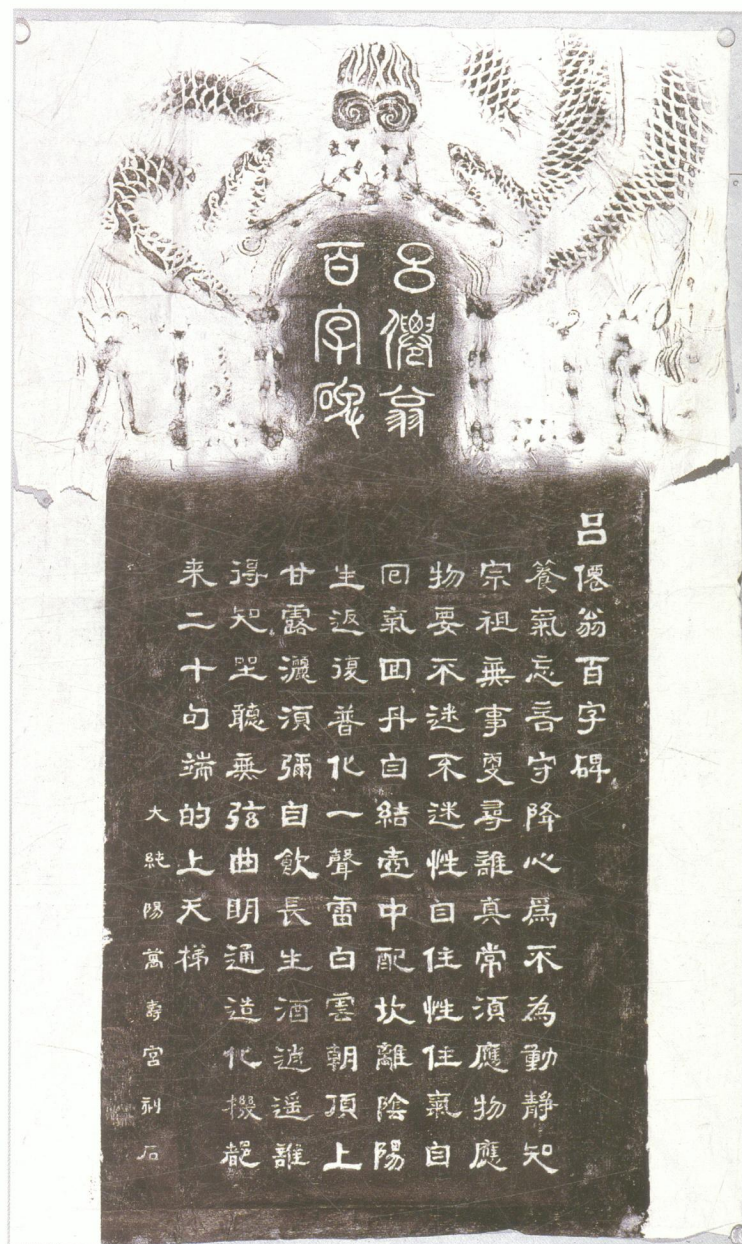 呂僊翁
百字碑
呂僊翁百字碑
養氣忘言守降心爲不為動静知
宗祖無事更尋誰真常須應物應
物要不迷不迷性自住性住氣自
回氣回丹自結壺中配坎離陰陽
生返復普化一聲雷白雲朝頂上
甘露灑須彌自飲長生酒逍遥誰
得知坐聽無弦曲明通造化機都
来二十句端的上天梯
大純陽萬壽宮刻石